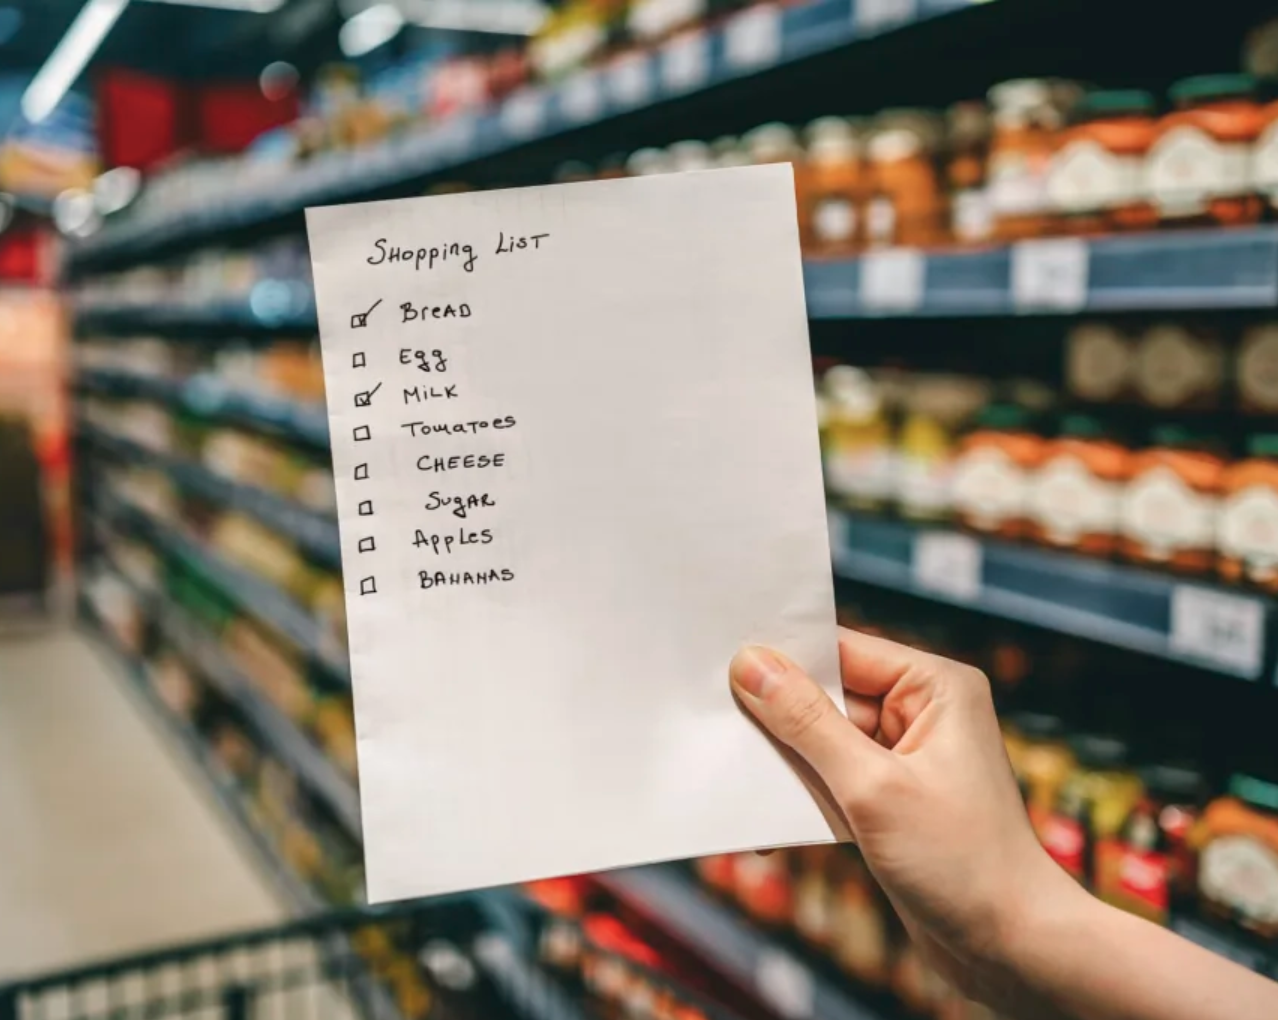 Shopping List
Bread
Egg
Milk
Tomatoes
CHEESE
Sugar
Apples
BANANAS